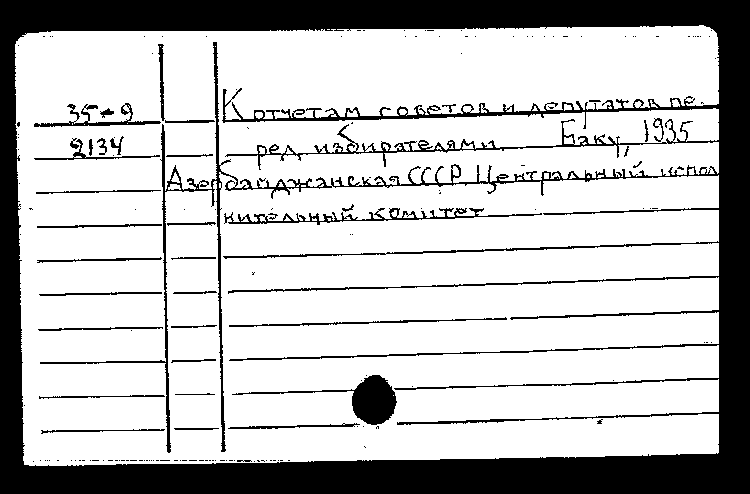 35-9 К отчетам советов и депутатов пе-
2134 ред избирателями. Баку, 1935
Азербайджанская СССР. Центральный испол
нительный комитет